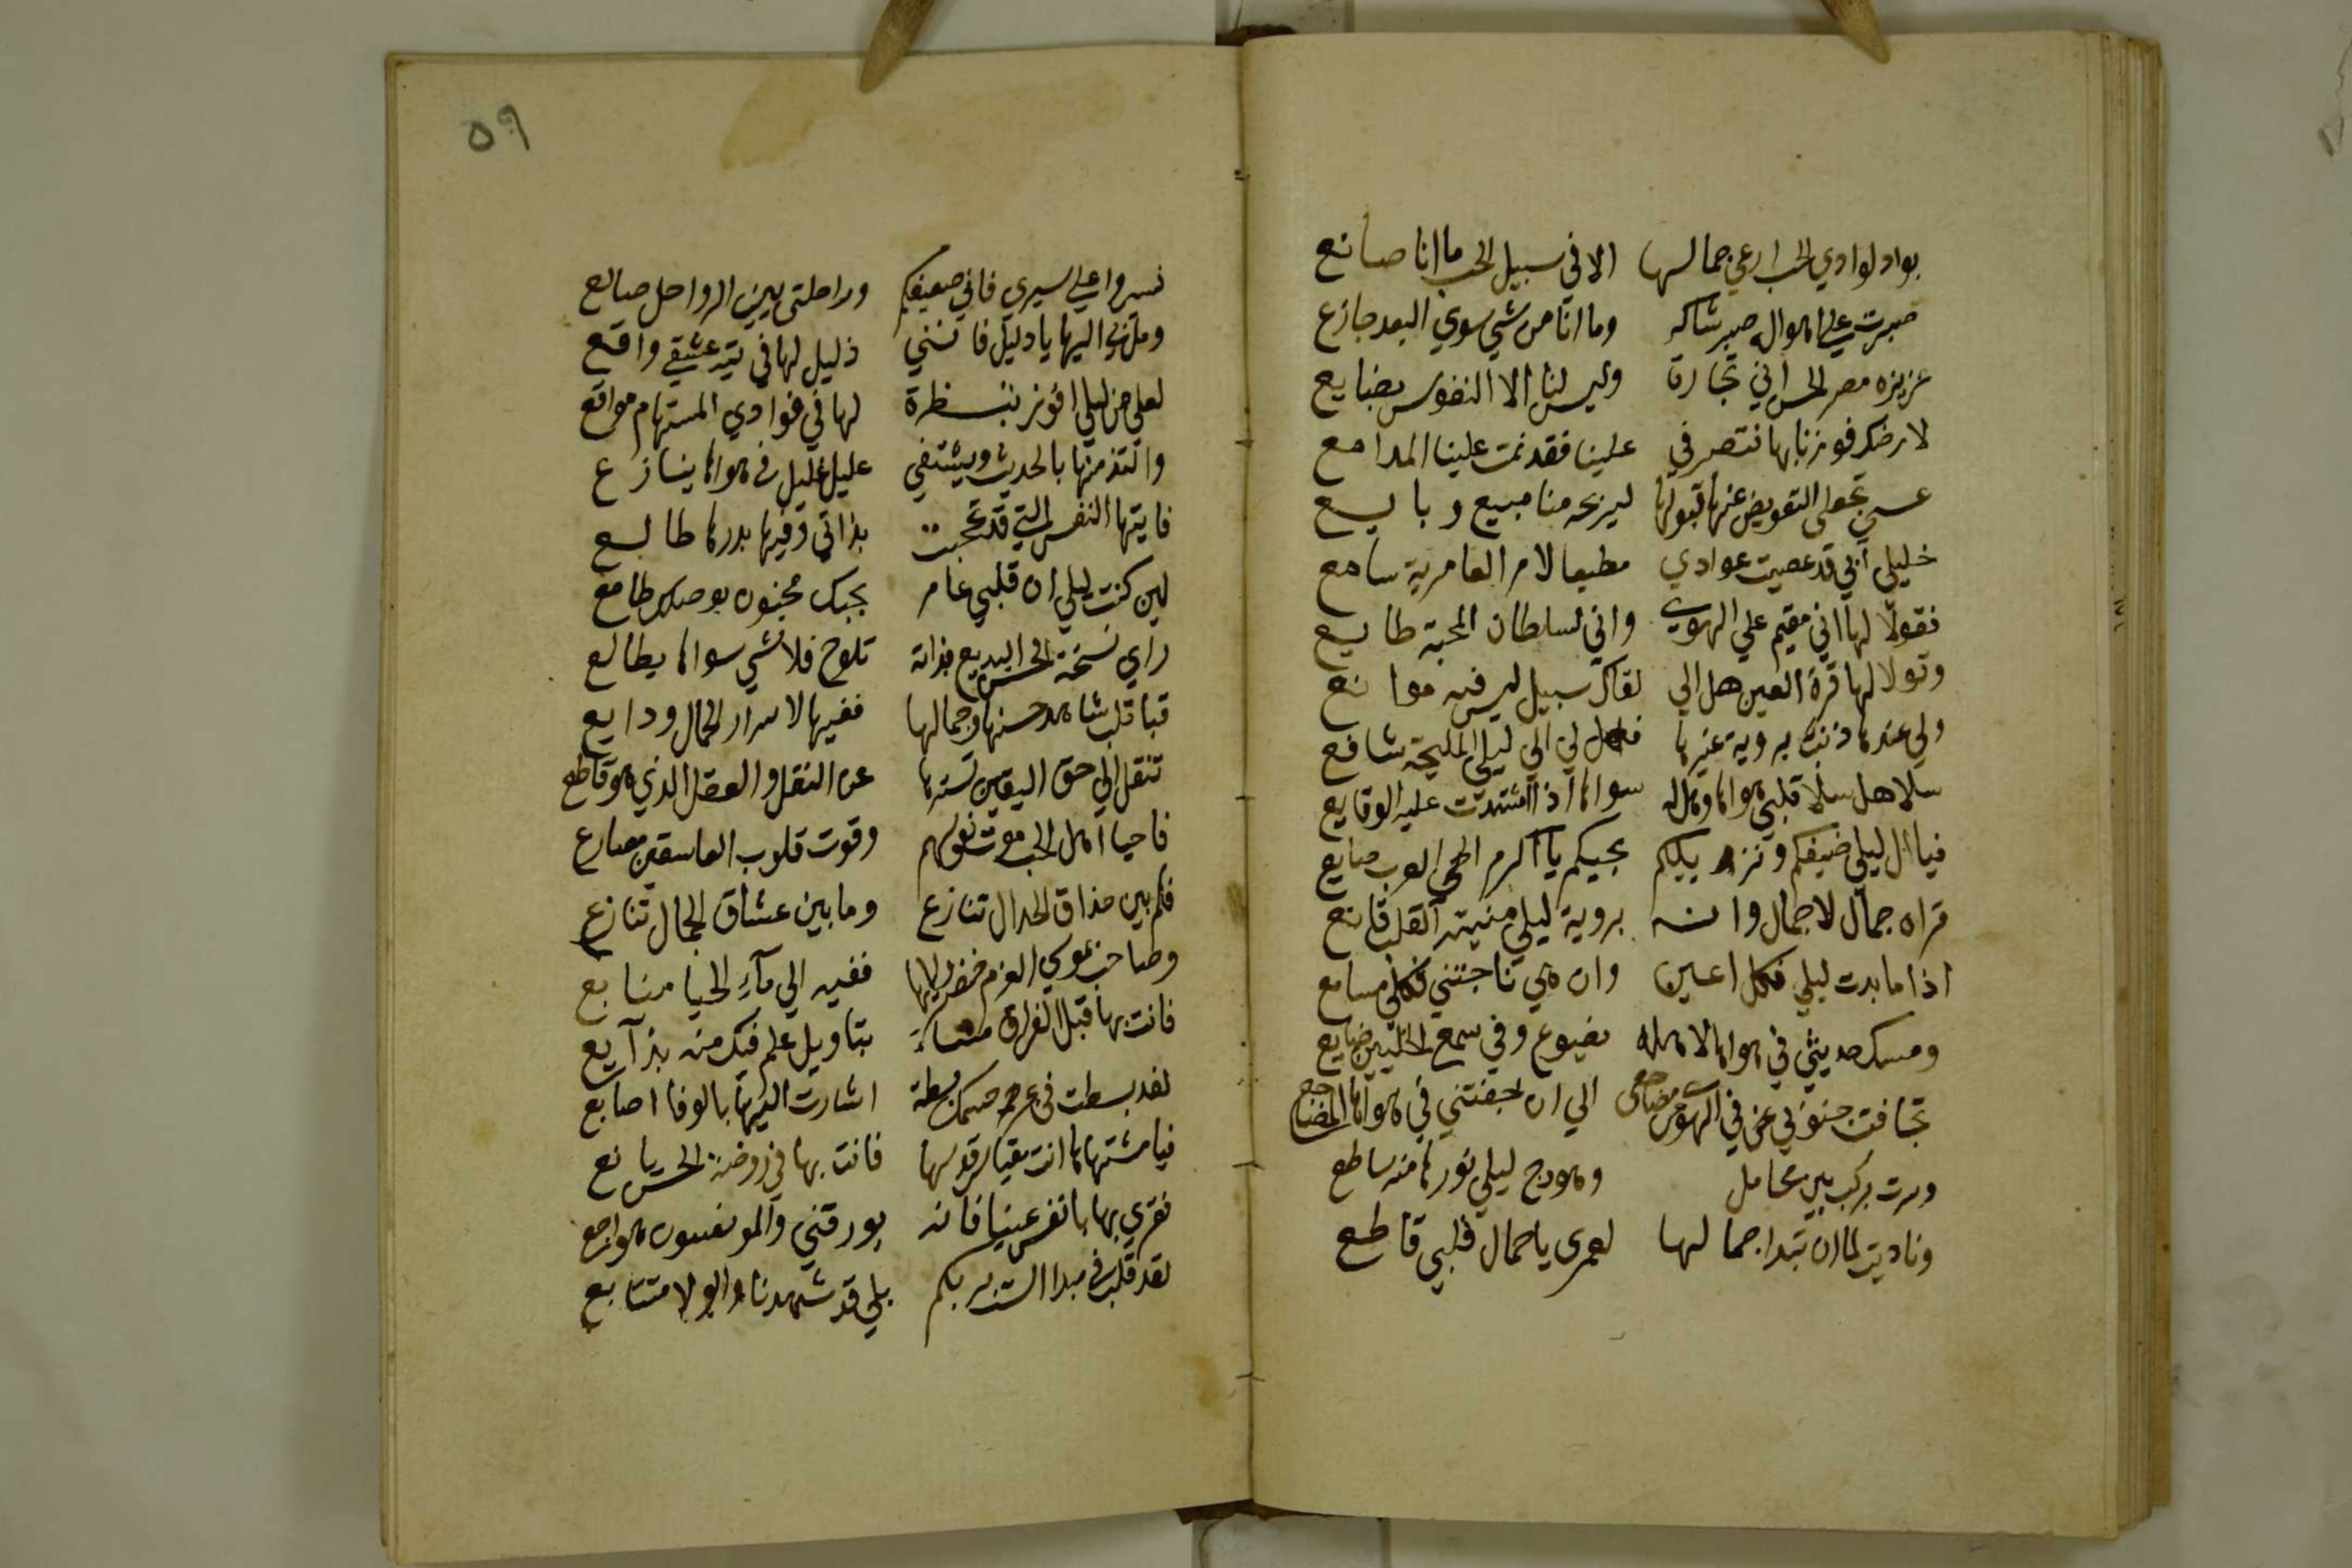 بواد لوادي الحب ارعي جمالها الا في سبيل الحب ما انا صانع
صبرت علي اهواله صبر شاكر وما انا من شي سوي البعد جازع
عزيزه مصر الحسن اني تجارة وليس لنا الا النفوس بضايع
فوزنا بها فتصرفي علينا فقد نمت علينا المدامع
عسي تجعلي التعويض عنها قبولها ليربحه منا مبيع وبايع
خليلي اني قد عصيت عوادي مطيعا لامر العامرية سامع
فقولا لها اني مقيم علي الهوي واني لسلطان المحبة طايع
وقولا لها قرة العين هل الي لقاك سبيل ليس فيه موانع
ولي عندها ذنب بروية غيرها فهل لي الي ليلي المليحة شافع
سلا هل سلا قلبي هواها وهل له سواها اذا اشتدت عليه الوقايع
فيا ال ليلي ضيفكم ونزيلكم بحيكم يا اكرم العرب ضايع
قراه جمال لا جمال وانه بروية ليلي منية القلب قانع
اذا ما بدت ليلي فكلي اعين وان هي ناجتني فكلي مسامع
ومسك حديثي في هواها لاهله يضوع وفي سمع الخليين ضايع
تجافت جنوبي في الهوي عن مضاجعي الي ان جفتني في هواها المضاجع
وسرت بركب بين محامل وهودج ليلي نورها منه ساطع
وناديت لما ان تبدا جمالها لعمري يا جمال قلبي قاطع
٥٩
فسيروا علي سيري فاني ضعيفكم وراحلتي بين الرواحل ضالع
ومل بي اليها يا دليل فانني ذليل لها في تيه عشقي واقع
لعلي من ليلي افوز بنظرة لها في فوادي المستهام مواقع
والتذ منها بالحديث ويشتفي عليل غليل في هواها ينازع
فايتها النفس التي قد تحجبت بذاتي وفيها بدرها طالع
لين كنت ليلي ان قلبي عامر بحبك مجنون بوصلك طامع
راي نسخة الحسن البديع بذاته تلوح فلا شي سواها يطالع
فيا قلب شاهد حسنها وجمالها ففيها لاسرار الجمال ودايع
تنقل الي حق اليقين تنزها عن النقل والعقل الذي هو قاطع
فاحيا اهل الحب موت نفوسهم وقوت قلوب العاشقين مصارع
فكم بين حذاق الجدال تنازع وما بين عشاق الجمال تنازع
وصاحب بموسي العزم خضر ففيه الي مآء الحيا منابع
فانت بها قبل الفراق بتاويل علم فيك منه بدآيع
لقد بسطت في بحر جسمك بسطة اشارت اليها بالوفا اصابع
فيا مشتهاها انت مقياس قدسها فانت بها في روضة الحسن يانع
فقري بها يا نفس عينا فانه
لقد قلت في مبدا الست بربكم بلي قد شهدنا والولا متتابع